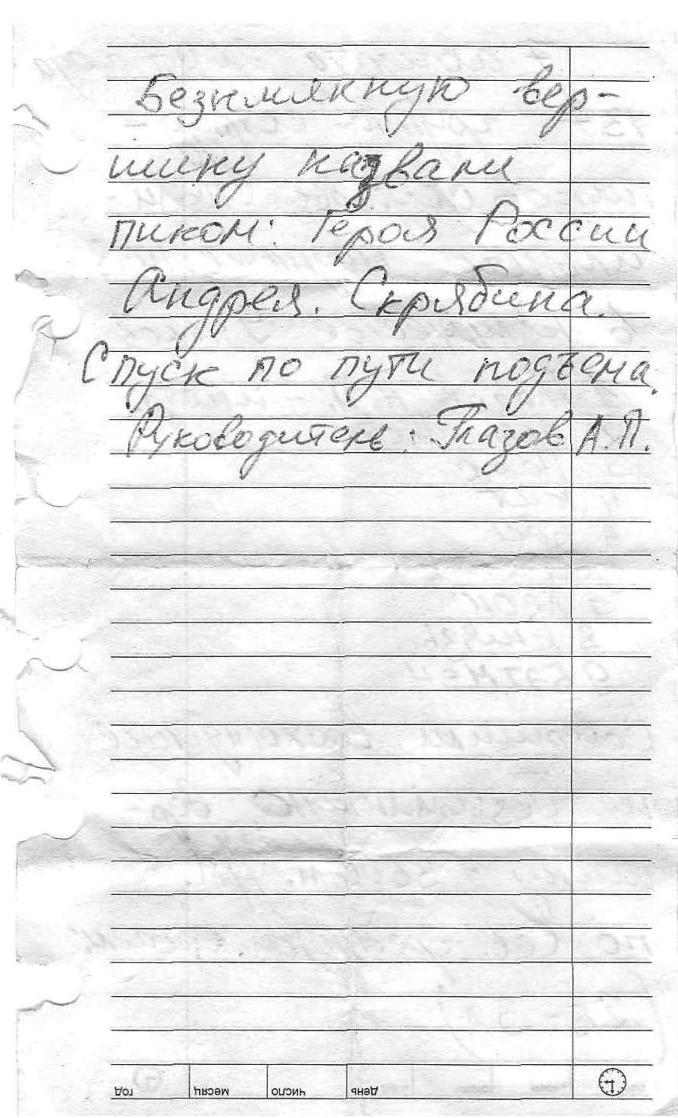 Безымянную вер-
шину назвали
пиком: Героя России
Андрея. Скрябина.
Спуск по пути подъема.
Руководитель: Глазов А.П.
год месяц число день